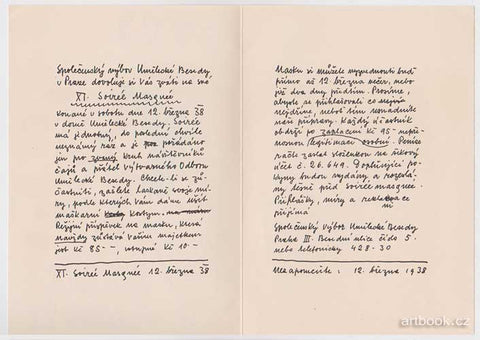 Společenský výbor Umělecké Besedy
v Praze dovoluje si Vás zváti na své
XI. Soireé Masqueé
konané v sobotu dne 12. března 38
v domě Umělecké Besedy. Soireé
má jednotný, do poslední chvíle
neznámý ráz a je pořádáno
jen pro zvaný kruh návštěvníků
členů a přátel výtvarného odboru
Umělecké Besedy. Chcete-li se zú-
častniti, zašlete laskavě svoje mí-
ry, podle kterých Vám dáme ušít
maškarní kostym.
Režijní příspěvek na masku, která
navždy zůstává Vaším majetkem
jest Kč 85 —, vstupné Kč 10 —
XI. Soireé Masqueé 12. března 38
Masku si můžete vyzvednouti buď
přímo až 12. března večer, nebo
již dva dny předtím. Prosíme,
abyste se přihlašovali co nej-
dříve, neboť tím usnadníte
nám přípravy. Každý účastník
obdrží po zaslání Kč 95 — nepře-
nosnou legitimaci osobně. Peníze
račte zaslat složenkou na šekový
účet č. 26.649. Doplňující po-
kyny budou vydány a rozeslá-
ny těsně před Soireé masqueé.
Přihlášky, míry a reklamace
přijímá
Společenský výbor Umělecké Besedy
Praha III. Besední ulice číslo 5.
nebo telefonicky 428-30
Nezapomeňte : 12. března 1938
artbook.cz